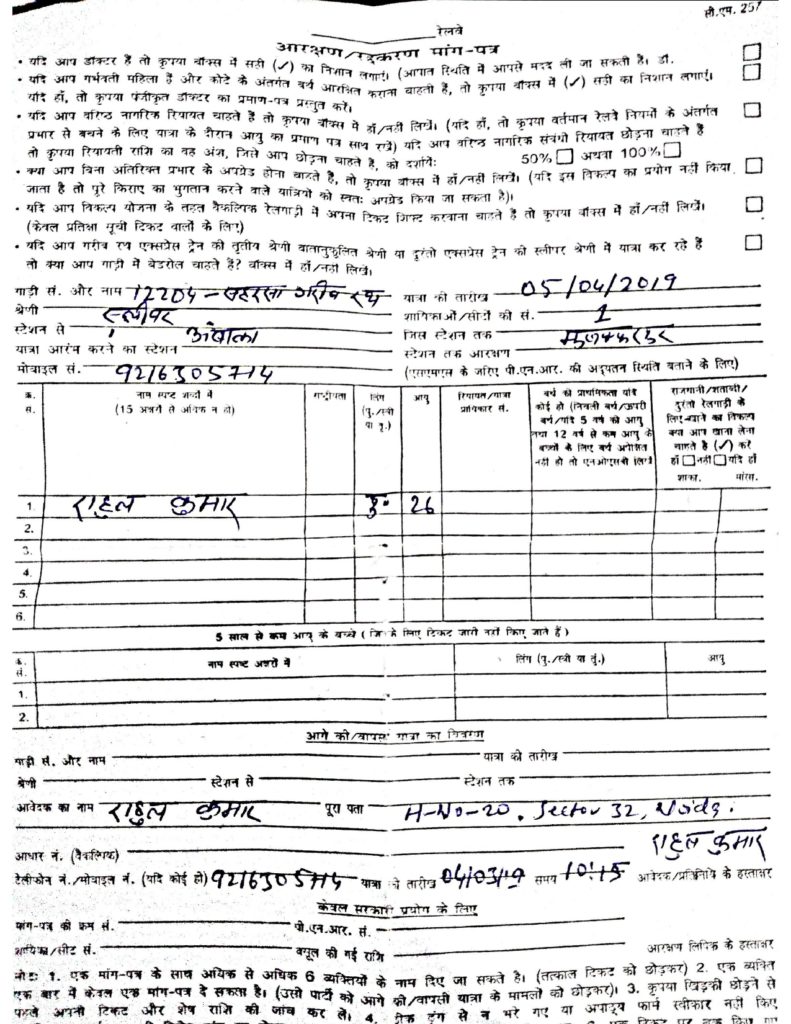 सी.एम. 251
रेलवे
आरक्षण/रद्दकरण मांग-पत्र
• यदि आप डॉक्टर है तो कृपया बॉक्स में सही (✓) का निशान लगाएं। (आपात स्थिति में आपसे मदद ली जा सकती है। डॉ.
• यदि आप गर्भवती महिला है और कोटे के अंतर्गत बर्थ आरक्षित कराना चाहती है, तो कृपया बॉक्स में (✓) सही का निशान लगाएं।
यदि हाँ, तो कृपया पंजीकृत डॉक्टर का प्रमाण-पत्र प्रस्तुत करें।
• यदि आप वरिष्ठ नागरिक रियायत चाहते है तो कृपया बॉक्स में हाँ/नहीं लिखें। (यदि हाँ, तो कृपया वर्तमान रेलवे नियमों के अंतर्गत
प्रभार से बचने के लिए यात्रा के दौरान आयु का प्रमाण पत्र साथ रखें) यदि आप वरिष्ठ नागरिक संबंधी रियायत छोड़ना चाहते हैं
तो कृपया रियायती राशि का वह अंश, जिसे आप छोड़ना चाहते है, को दर्शायें: 50% अथवा 100%
• क्या आप बिना अतिरिक्त प्रभार के अपग्रेड होना चाहते है, तो कृपया बॉक्स में हाँ/नहीं लिखें। (यदि इस विकल्प का प्रयोग नहीं किया
जाता है तो पूरे किराए का भुगतान करने वाले यात्रियों को स्वतः अपग्रेड किया जा सकता है)।
• यदि आप विकल्प योजना के तहत वैकल्पिक रेलगाड़ी में अपना टिकट शिफ्ट करवाना चाहते है तो कृपया बॉक्स में हाँ/नहीं लिखें।
(केवल प्रतिक्षा सूची टिकट वालों के लिए)
• यदि आप गरीब रथ एक्सप्रेस ट्रेन की तृतीय श्रेणी वातानुकूलित श्रेणी या दुरंतो एक्सप्रेस ट्रेन की स्लीपर श्रेणी में यात्रा कर रहे हैं
तो क्या आप गाड़ी में बेडरोल चाहते हैं? बॉक्स में हाँ/नहीं लिखें।
गाड़ी सं. और नाम 12204 – सहरसा गरीब रथ यात्रा की तारीख 05/04/2019
श्रेणी स्लीपर शायिकाओं/सीटों की सं. 1
स्टेशन से अंबाला जिस स्टेशन तक
यात्रा आरंभ करने का स्टेशन स्टेशन तक आरक्षण
मोबाइल सं. 9216305714 (एसएमएस के जरिए पी.एन.आर. की अद्यतन स्थिति बताने के लिए)
क्र. सं. नाम स्पष्ट शब्दों में (15 अक्षरों से अधिक न हो) राष्ट्रीयता लिंग (पु./स्त्री या तृ.) आयु रियायत/यात्रा प्राधिकार सं. बर्थ की प्राथमिकता यदि कोई हो (निचली बर्थ/ऊपरी बर्थ/यदि 5 वर्ष की आयु तथा 12 वर्ष से कम आयु के बच्चों के लिए बर्थ अपेक्षित नहीं हो तो एनओएसबी लिखें राजधानी/शताब्दी/ दुरंतो रेलगाड़ी के लिए क्या आप खाना लेना चाहते है (✓) करें हाँ नहीं यदि हाँ शाका. मांसा.
1. राहुल कुमार पु. 26
2.
3.
4.
5.
6.
5 साल से कम आयु के बच्चे (जिनके लिए टिकट जारी नहीं किए जाते हैं)
क्र. सं. नाम स्पष्ट अक्षरों में लिंग (पु./स्त्री या तृ.) आयु
1.
2.
आगे की/वापसी यात्रा का विवरण
गाड़ी सं. और नाम यात्रा की तारीख
श्रेणी स्टेशन से स्टेशन तक
आवेदक का नाम राहुल कुमार पूरा पता H-No-20, Sector 32, Noida.
राहुल कुमार
आधार नं. (वैकल्पिक)
टेलीफोन नं./मोबाइल नं. (यदि कोई हो) 9216305714 यात्रा की तारीख 04/03/19 समय 10:15 आवेदक/प्रतिनिधि के हस्ताक्षर
केवल सरकारी प्रयोग के लिए
मांग-पत्र की क्रम सं. पी.एन.आर. सं.
शायिका/सीट सं. वसूल की गई राशि आरक्षण लिपिक के हस्ताक्षर
नोट: 1. एक मांग-पत्र के साथ अधिक से अधिक 6 व्यक्तियों के नाम दिए जा सकते है। (तत्काल टिकट को छोड़कर) 2. एक व्यक्ति
एक बार में केवल एक मांग-पत्र दे सकता है। (उसी पार्टी को आगे की/वापसी यात्रा के मामलों को छोड़कर)। 3. कृपया खिड़की छोड़ने से
पहले अपनी टिकट और शेष राशि की जांच कर लें। 4. ठीक ढंग से न भरे गए या अपाठ्य फार्म स्वीकार नहीं किए